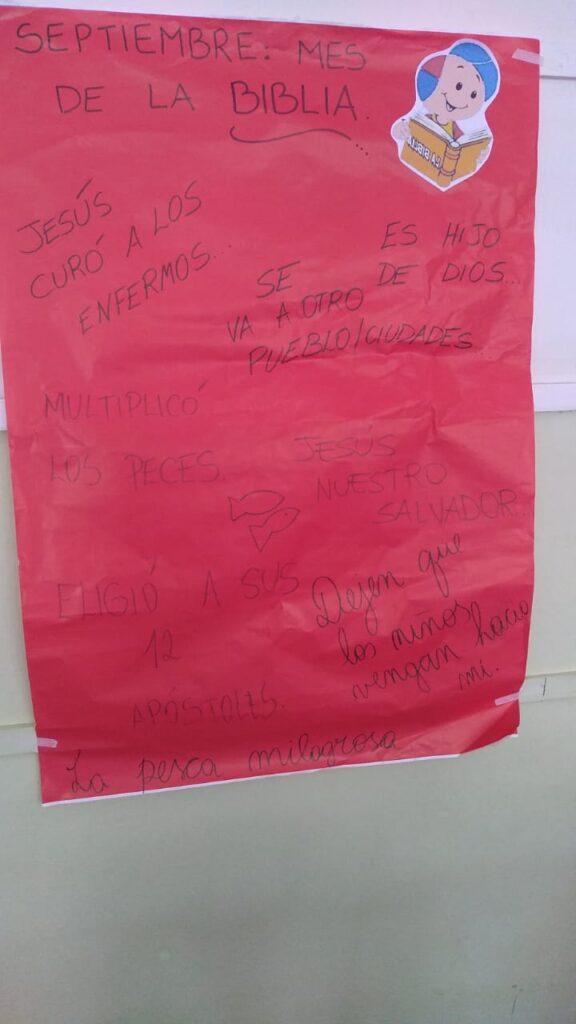 SEPTIEMBRE: MES
DE LA BIBLIA.
LA BIBLIA
JESÚS
CURÓ A LOS
ENFERMOS...
ES HIJO
DE DIOS...
SE
VA A OTRO
PUEBLO/CIUDADES...
MULTIPLICÓ
LOS PECES.
JESÚS
NUESTRO
SALVADOR.
ELIGIÓ A SUS
12
APÓSTOLES.
Dejen que
los niños
vengan hacia
mí.
La pesca milagrosa